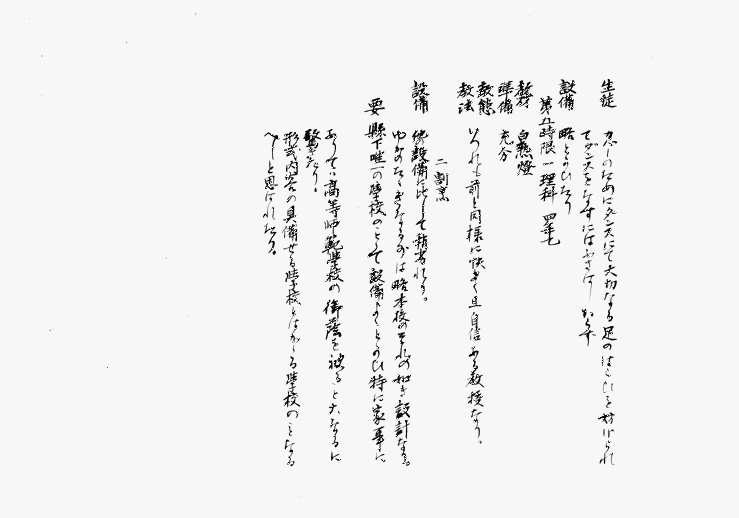 生徒 カバーのためにダンスにて大切なる足のはこびを妨げられ
てダンスをなすにはふさはしからず
設備 略とゝのひたり
第五時限 一 理科 四年七
教材 白熱燈
準備 充分
教態
教法 いづれも前と同様に快きく且自信ある教授なり。
二 割烹
設備 他設備に比して稍劣れり。
ゆかのたゝきなるがは略本校のそれの如き設計なる。
要 縣下唯一の学校のことゝて設備よくとゝのひ特に家事に
ありては高等師範学校の御蔭を被ること大なるに
驚きたり。
形式内容の具備せる学校とはかゝる学校のことなる
べしと思はれたり。